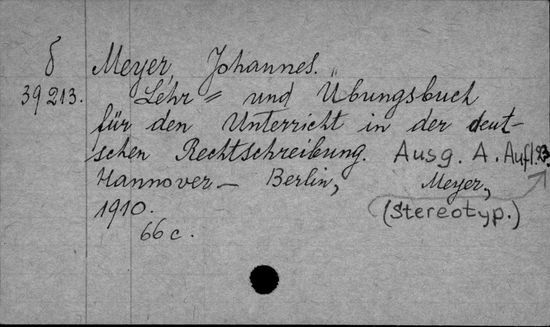 δ Meyer, Johannes.
39213. Lehr= und Übungsbuch
für den Unterricht in der deut-
schen Rechtschreibung. Ausg. A. Aufl. 83.
Hannover - Berlin, Meyer,
1910. (Stereotyp.)
66 c.